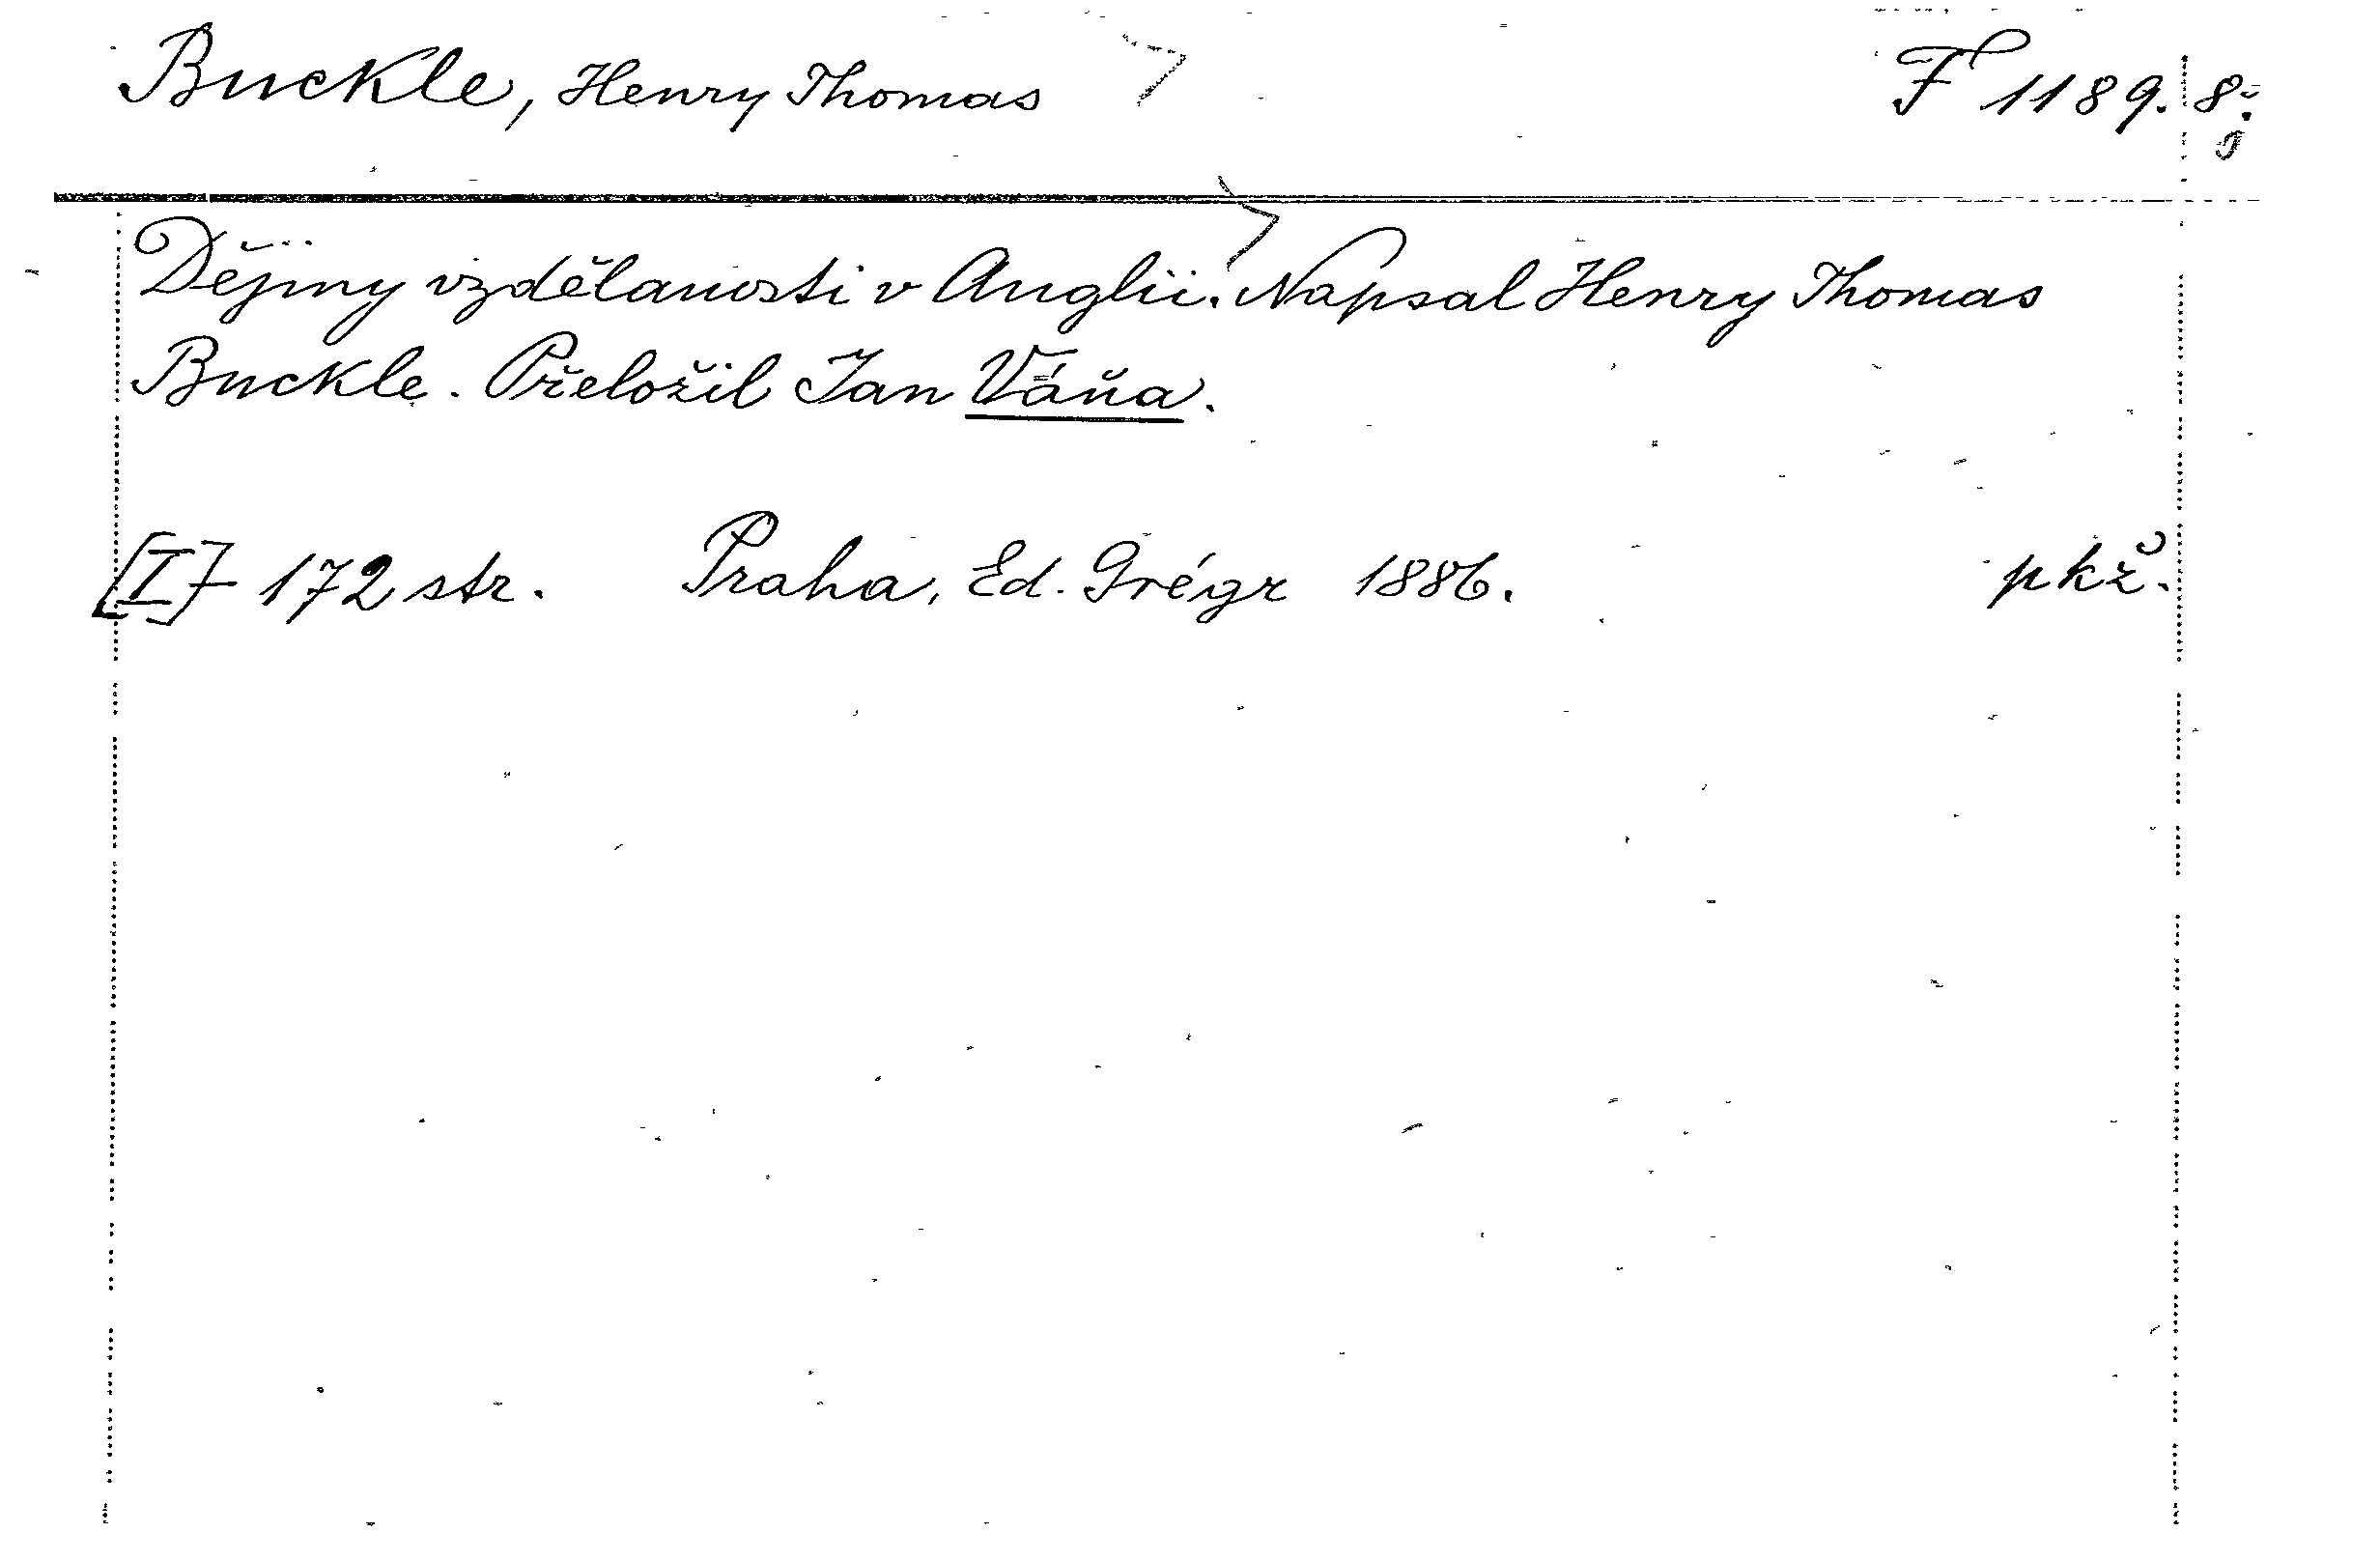 Buckle, Henry Thomas F 1189. 8.
Dějiny vzdělanosti v Anglii. Napsal Henry Thomas
Buckle. Přeložil Jan Váňa.
[I] 172 str. Praha, Ed. Grégr 1886. pkž.